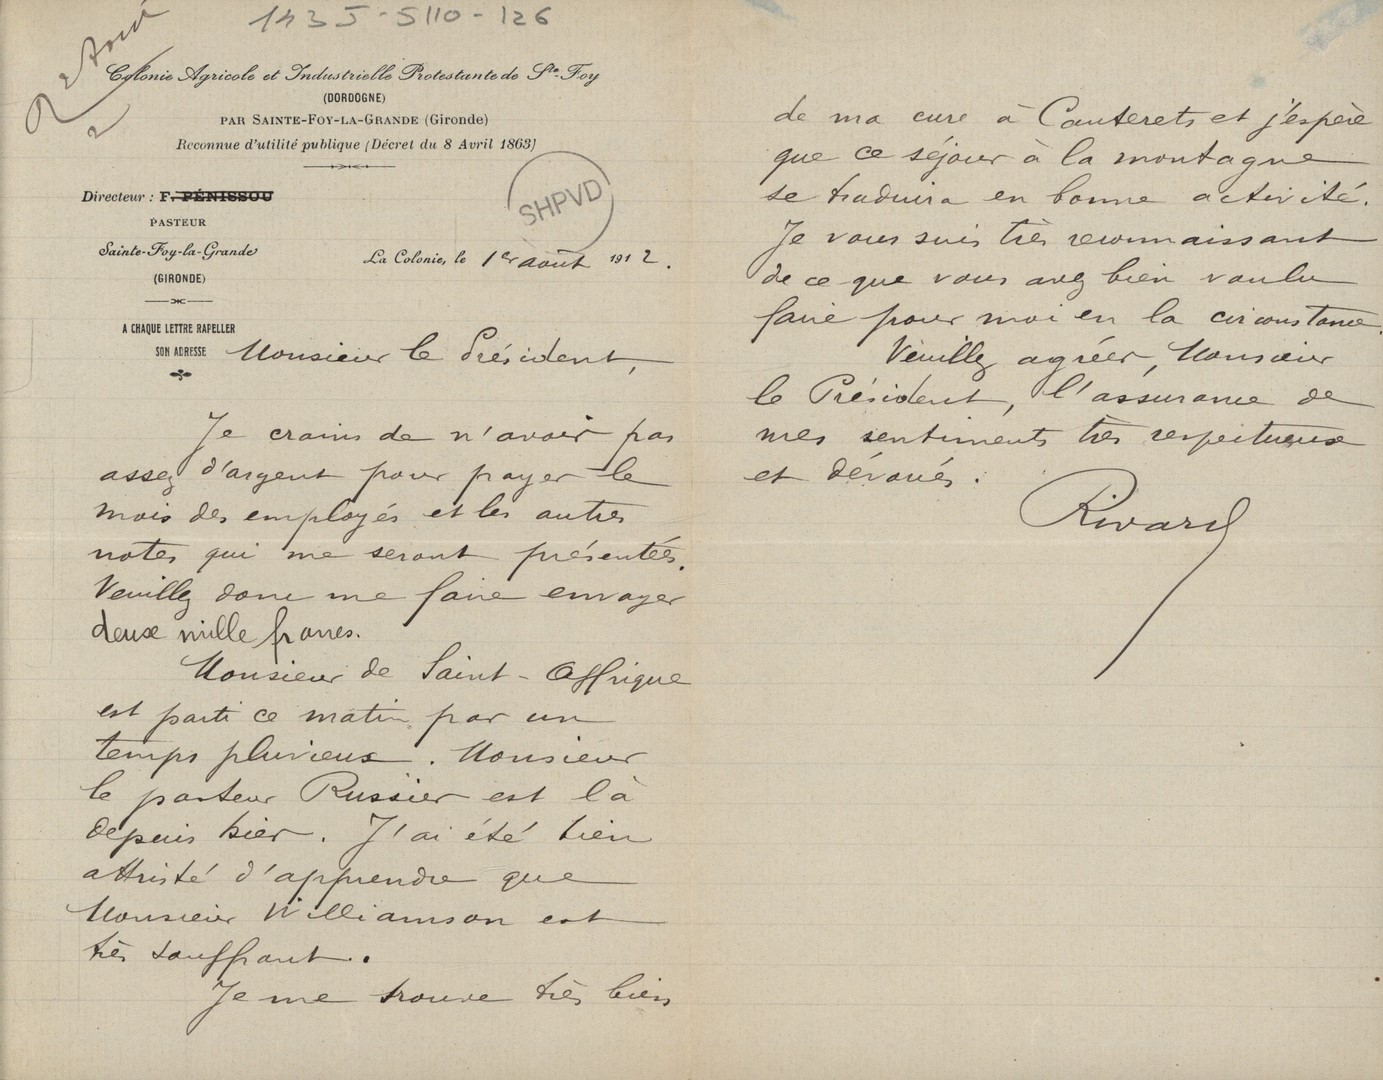 143J-5110-126
R 2 Août
Colonie Agricole et Industrielle Protestante de Ste-Foy
(DORDOGNE)
PAR SAINTE-FOY-LA-GRANDE (Gironde)
Reconnue d'utilité publique (Décret du 8 Avril 1863)
SHPVD
Directeur : F. PÉNISSOU
PASTEUR
Sainte-Foy-la-Grande
(GIRONDE)
La Colonie, le 1er août 1912.
A CHAQUE LETTRE RAPELLER
SON ADRESSE
Monsieur le Président,
Je crains de n'avoir pas
assez d'argent pour payer le
mois des employés et les autres
notes qui me seront présentées.
Veuillez donc me faire envoyer
deux mille francs.
Monsieur de Saint-Affrique
est parti ce matin par un
temps pluvieux. Monsieur
le pasteur Russier est là
depuis hier. J'ai été bien
attristé d'apprendre que
Monsieur Williamson est
très souffrant.
Je me trouve très bien
de ma cure à Cauterets et j'espère
que ce séjour à la montagne
se traduira en bonne activité.
Je vous suis très reconnaissant
de ce que vous avez bien voulu
faire pour moi en la circonstance.
Veuillez agréer, Monsieur
le Président, l'assurance de
mes sentiments très respectueux
et dévoués.
Rivard